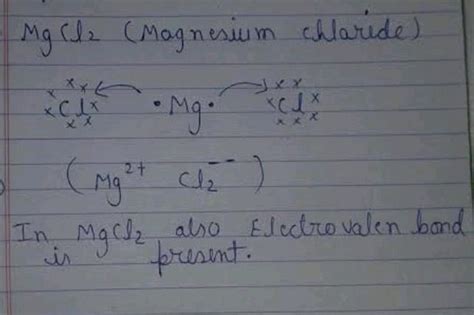 MgCl2 (Magnesium chlaride)
Cl •Mg• Cl
(Mg2+ Cl2--)
In MgCl2 also Electrovalen bond
is present.